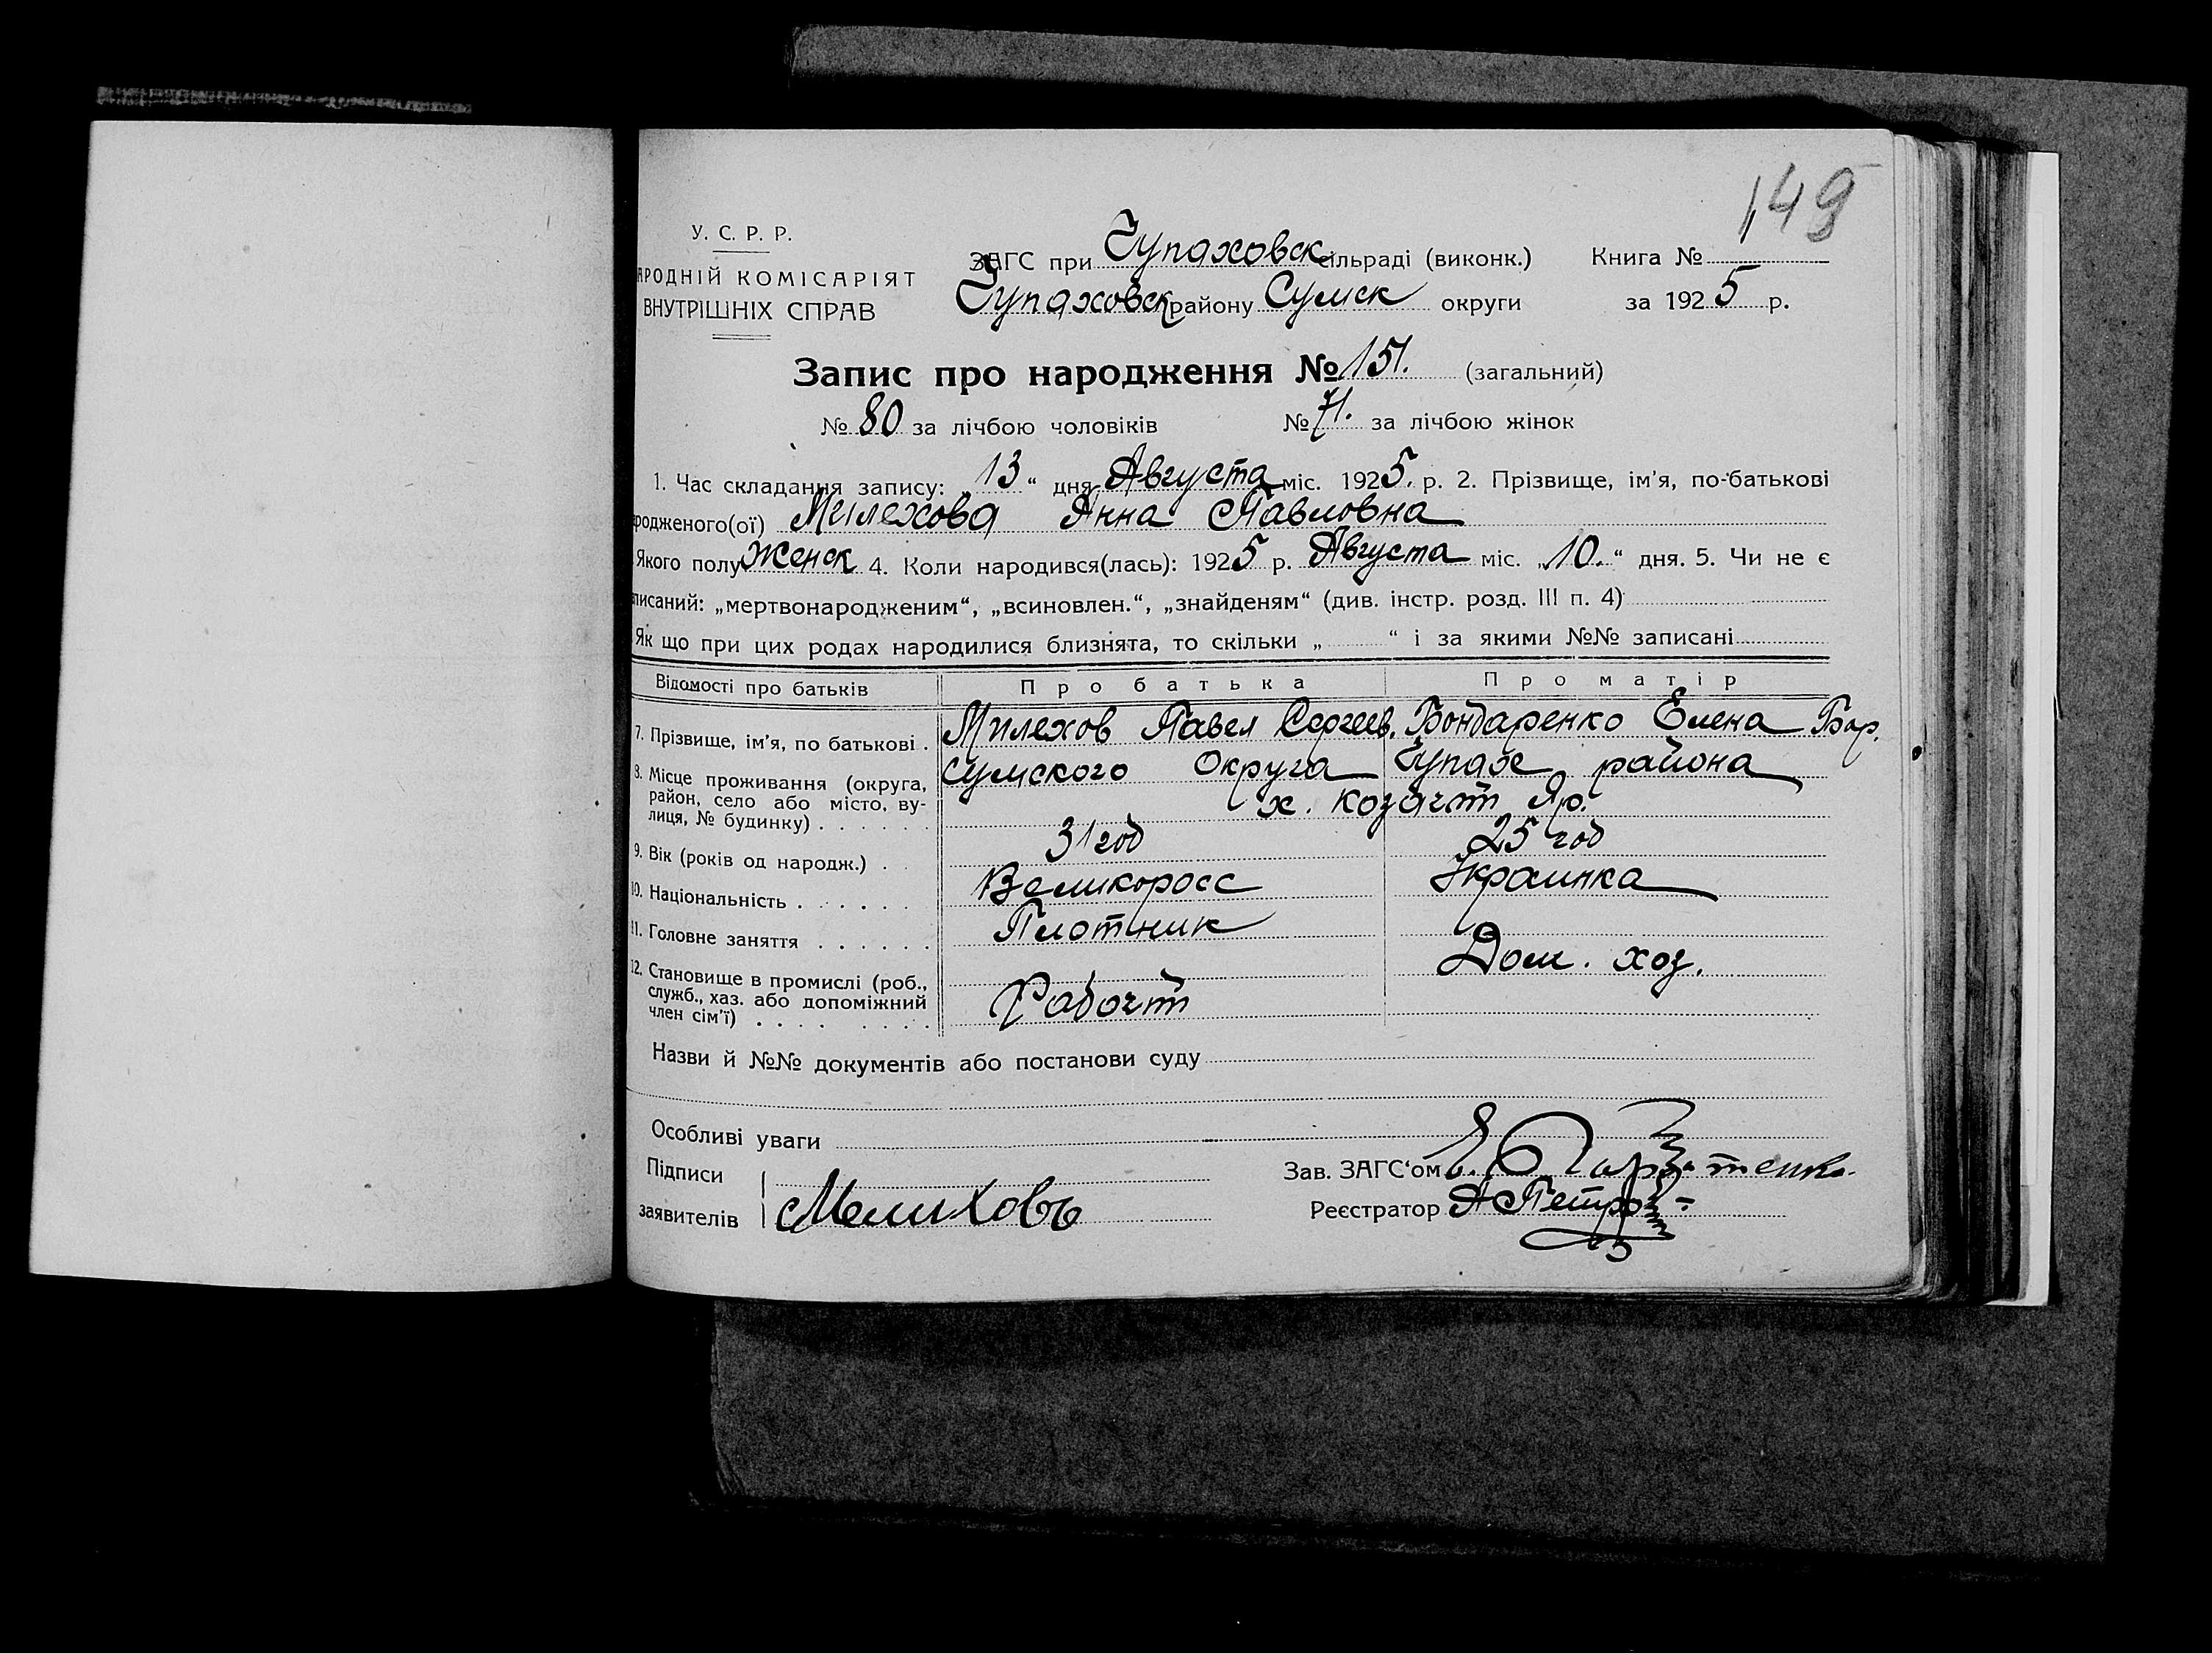 149
У. С. Р. Р.
АРОДНІЙ КОМІСАРІЯТ
ВНУТРІШНІХ СПРАВ
ЗАГС при Чупаховск сільраді (виконк.) Книга №
Чупаховск району Сумск округи за 1925 р.
Запис про народження № 151. (загальний)
№ 80 за лічбою чоловіків № 71. за лічбою жінок
1. Час складання запису: „13“ дня Августа міс. 1925. р. 2. Прізвище, ім'я, по-батькові
родженого(ої) Милехова Анна Павловна
Якого полу Женск 4. Коли народився(лась): 1925 р. Августа міс. „10.“ дня. 5. Чи не є
писаний: „мертвонародженим“, „всиновлен.“, „знайденям“ (див. інстр. розд. III п. 4)
Як що при цих родах народилися близнята, то скільки „ “ і за якими №№ записані
Відомості про батьків Про батька Про матір
7. Прізвище, ім'я, по батькові . Милехов Павел Сергеев. Бондаренко Елена
8. Місце проживання (округа, район, село або місто, ву-лиця, № будинку) . . . . . . Сумского Округа Чупах района
х. козачий Яр.
9. Вік (років од народж.) . . 31 год 25 год
10. Національність . . . . . . Великоросс Украинка
11. Головне заняття . . . . . . Плотник Дом. хоз.
12. Становище в промислі (роб.,
служб., хаз. або допоміжний
член сім'ї) . . . . . . . . Рабочий
Назви й №№ документів або постанови суду
Особливі уваги
Підписи Зав. ЗАГС'ом
заявителів Мелиховъ Реєстратор А Петр